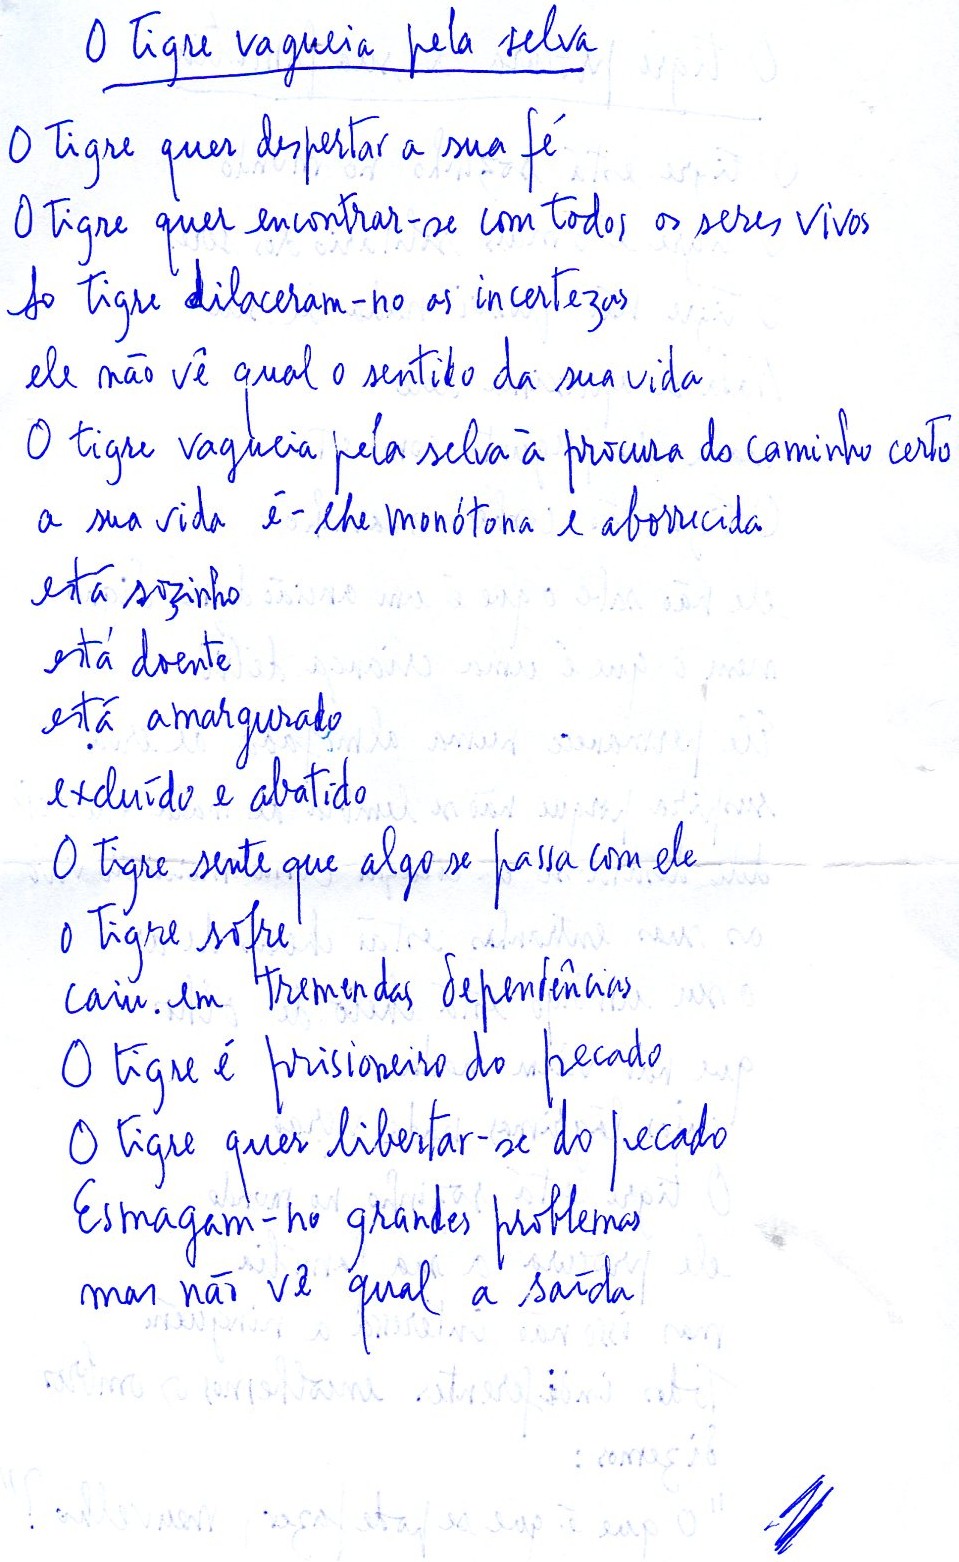 O tigre vagueia pela selva
O tigre quer despertar a sua fé
O tigre quer encontrar-se com todos os seres vivos
Ao tigre dilaceram-no as incertezas
ele não vê qual o sentido da sua vida
O tigre vagueia pela selva à procura do caminho certo
a sua vida é-lhe monótona e aborrecida
está sozinho
está doente
está amargurado
excluído e abatido
O tigre sente que algo se passa com ele
o tigre sofre
caiu em tremendas dependências
O tigre é prisioneiro do pecado
O tigre quer libertar-se do pecado
Esmagam-no grandes problemas
mas não vê qual a saída